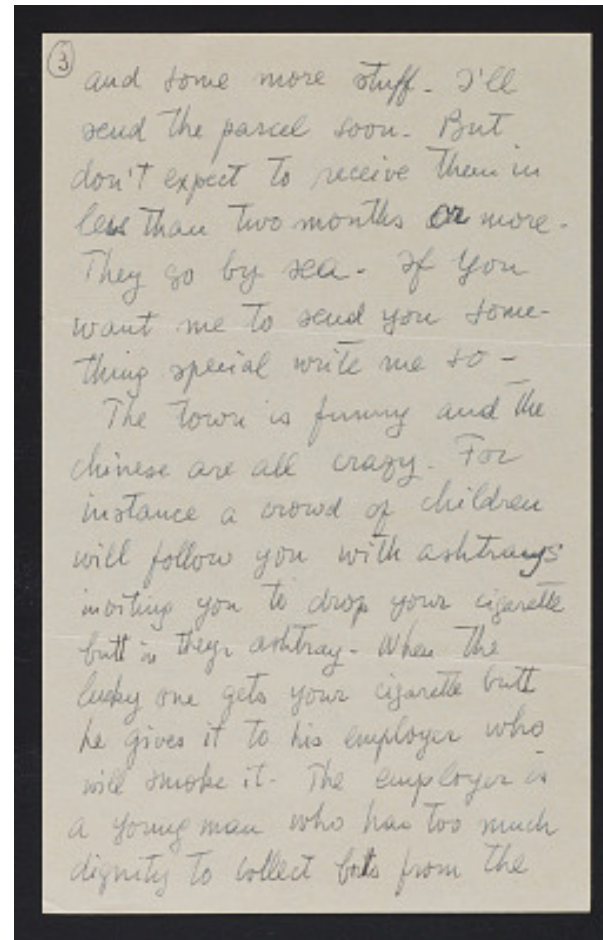 3
and some more stuff - I'll
send the parcel soon - But
don't expect to receive them in
less than two months or more -
They go by sea - If you
want me to send you some-
thing special write me so -
The town is funny and the
chinese are all crazy. For
instance a crowd of children
will follow you with ashtrays
inviting you to drop your cigarette
butt in theyr ashtray - When the
lucky one gets your cigarette butt
he gives it to his employer who
will smoke it - The employer is
a young man who has too much
dignity to collect butts from the